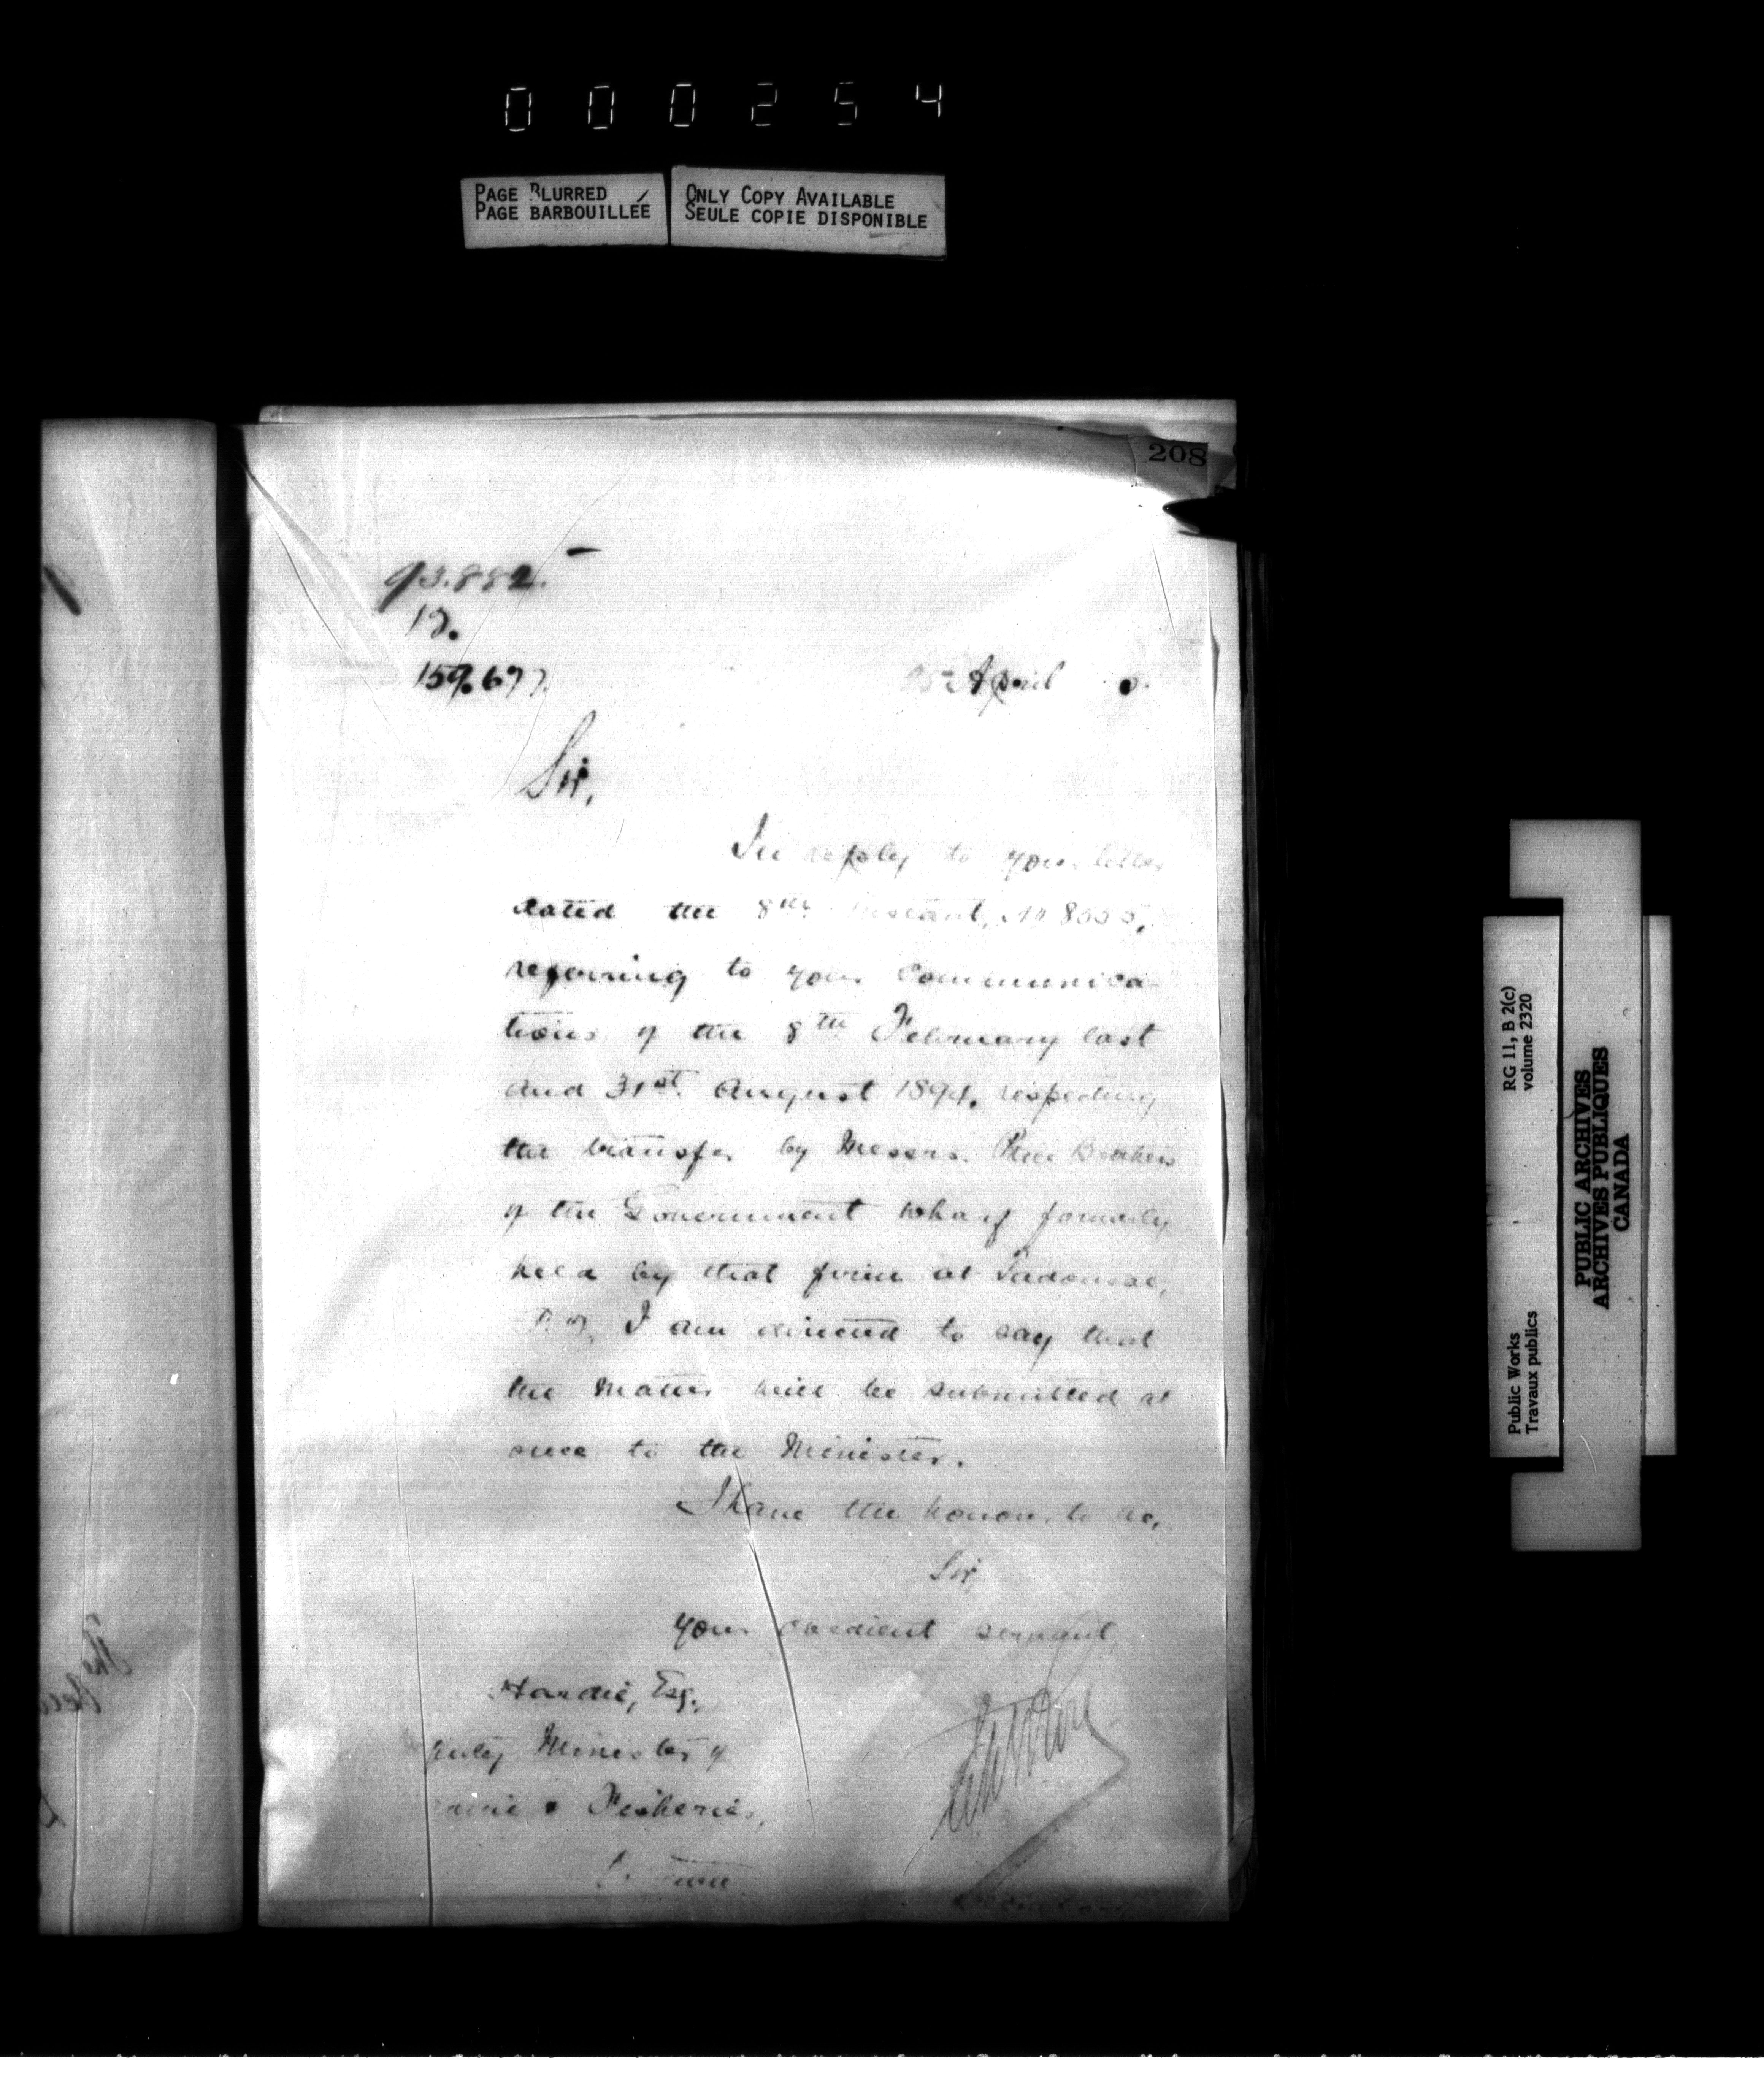 000254
PAGE BLURRED
PAGE BARBOUILLÉE
ONLY COPY AVAILABLE
SEULE COPIE DISPONIBLE
208
93.882.
159.677.
April
Sir,
In reply to your letter
dated the 8th instant, No 8555,
referring to your Communica-
tions of the 8th February last
and 31st August 1894, respecting
the transfer by Messrs. Price Brothers
of the Government wharf formerly
held by that firm at Tadousac,
P.Q. I am directed to say that
the matter will be submitted at
once to the Minister.
I have the honour to be,
Sir,
your obedient servant
Hardie, Esq.,
puty Minister of
arine & Fisheries,
RG 11, B 2(c)
volume 2320
Public Works
Travaux publics
PUBLIC ARCHIVES
ARCHIVES PUBLIQUES
CANADA